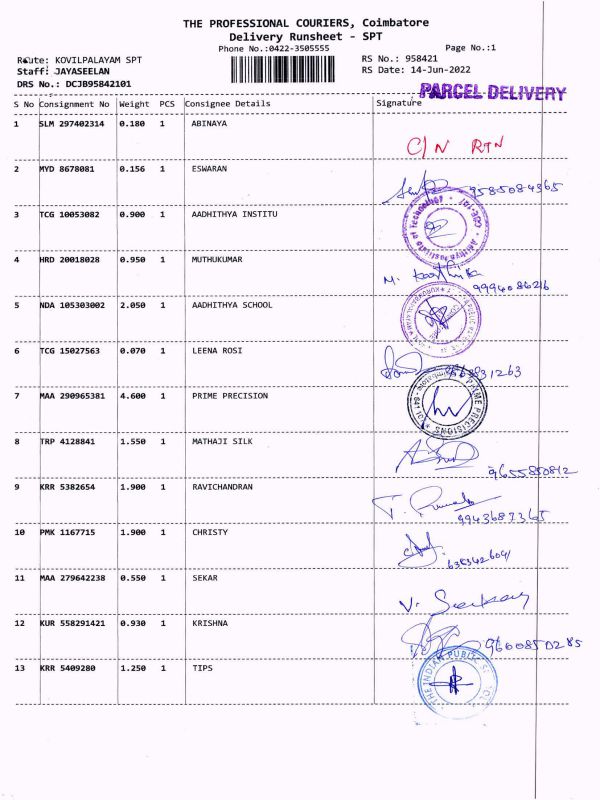 THE PROFESSIONAL COURIERS, Coimbatore
Delivery Runsheet - SPT
Phone No.:0422-3505555
Page No.:1
Route: KOVILPALAYAM SPT
RS No.: 958421
Staff: JAYASEELAN
RS Date: 14-Jun-2022
DRS No.: DCJB95842101
PARCEL DELIVERY
S No Consignment No Weight PCS Consignee Details Signature
1 SLM 297402314 0.180 1 ABINAYA
C/N RTN
2 MYD 8678081 0.156 1 ESWARAN
9585084365
3 TCG 10053082 0.900 1 AADHITHYA INSTITU
4 HRD 20018028 0.950 1 MUTHUKUMAR
M. Karthika
9994086216
5 NDA 105303002 2.050 1 AADHITHYA SCHOOL
6 TCG 15027563 0.070 1 LEENA ROSI
7 MAA 290965381 4.600 1 PRIME PRECISION
PRIME PRECISIONS
8 TRP 4128841 1.550 1 MATHAJI SILK
9655850812
9 KRR 5382654 1.900 1 RAVICHANDRAN
9943687365
10 PMK 1167715 1.900 1 CHRISTY
11 MAA 279642238 0.550 1 SEKAR
V. Seekar
12 KUR 558291421 0.930 1 KRISHNA
9600850285
13 KRR 5409280 1.250 1 TIPS
THE INDIAN PUBLIC